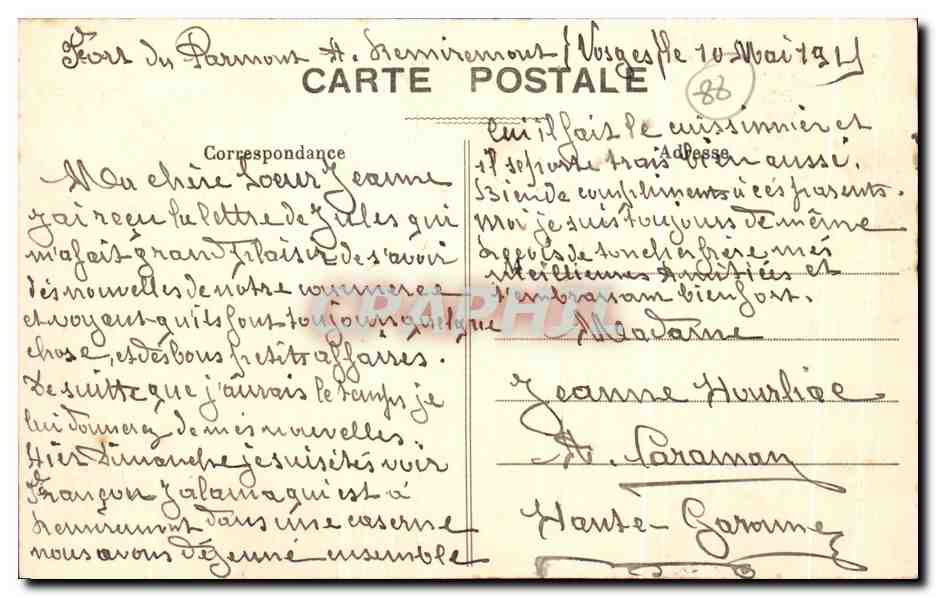 Fort du Parmont A. Remiremont (Vosges) le 10 Mai 191
88
CARTE POSTALE
Correspondance
Adresse
Ma chère Soeur Jeanne
j'ai reçu la lettre de Jules qui
m'a fait grand plaisir de s'avoir
dés nouvelles de notre commerce
et voyant qu'ils font toujours quelque
chose, et dés bons petits affaires.
De suitte que j'aurais le temps je
lui donnerez de més nouvelles.
Hier Dimanche je suis étés voir
Françon Jalama qui est à
Remiremont dans une caserne
nous avons déjeuné ensemble
lui il fait le cuissinnier et
il se porte trais bien aussi.
Bien de compliments à cés parents.
Moi je suis toujours de même
reçois de ton cher frère més
Meilleures Amitiées et
t'embrassant bien fort.
CPAPHIL
Madame
Jeanne Hourliac
A. Caraman
Haute-Garonne